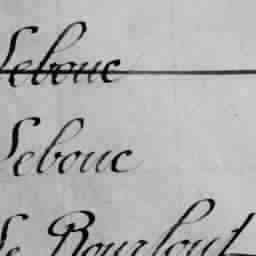 Lebouc
Lebouc
Le Bourlout